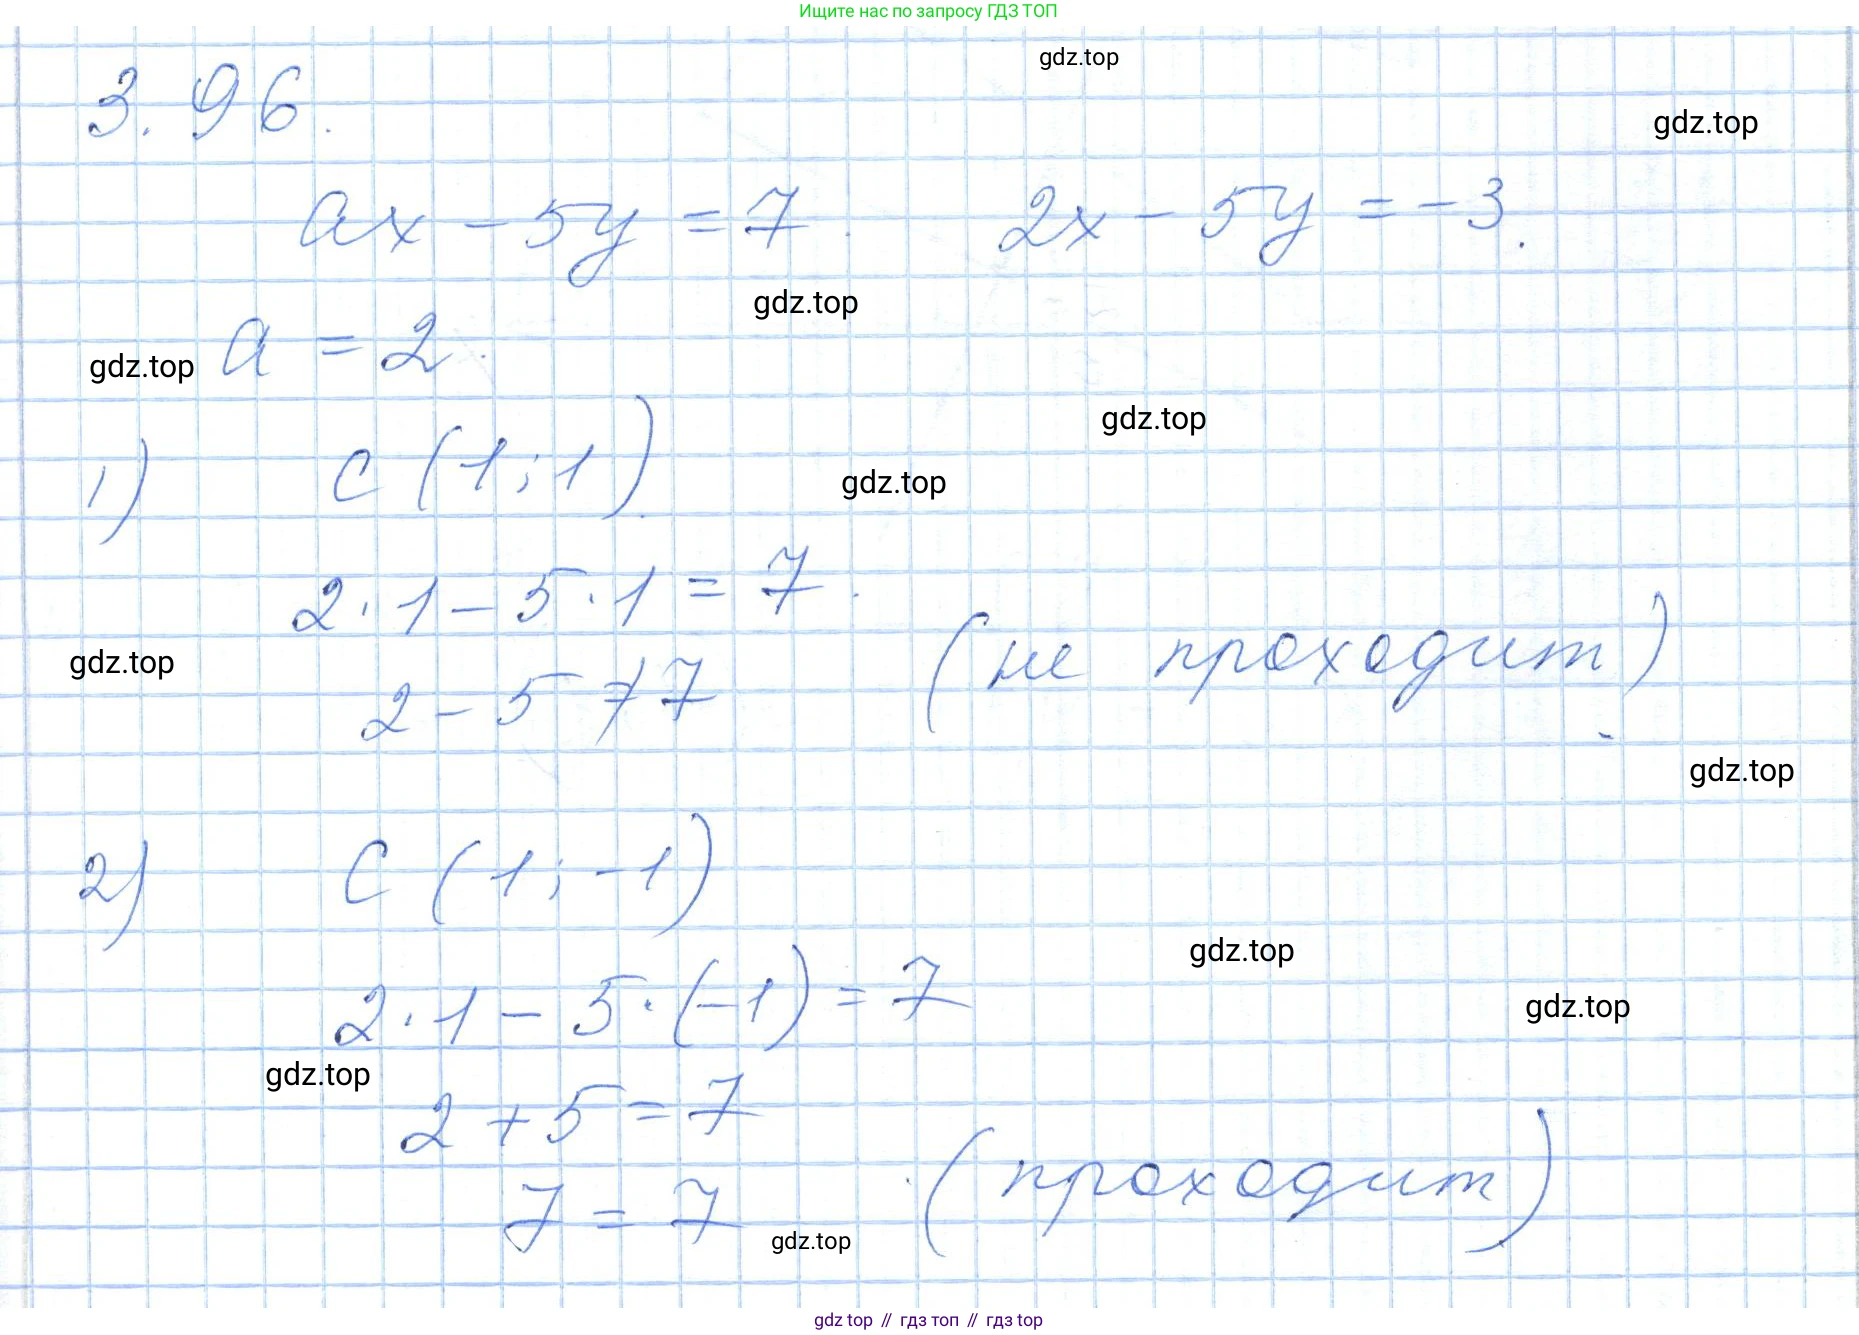 Ищите нас по запросу ГДЗ ТОП
gdz.top
3.96.
gdz.top
ax - 5y = 7. 2x - 5y = -3.
gdz.top
gdz.top a = 2.
gdz.top
1) C (1; 1).
gdz.top
2 · 1 - 5 · 1 = 7.
gdz.top
2 - 5 ≠ 7 (не проходит)
gdz.top
2) C (1; -1)
gdz.top
2 · 1 - 5 · (-1) = 7
gdz.top
gdz.top
2 + 5 = 7
7 = 7 (проходит)
gdz.top
gdz.top // гдз топ // гдз top